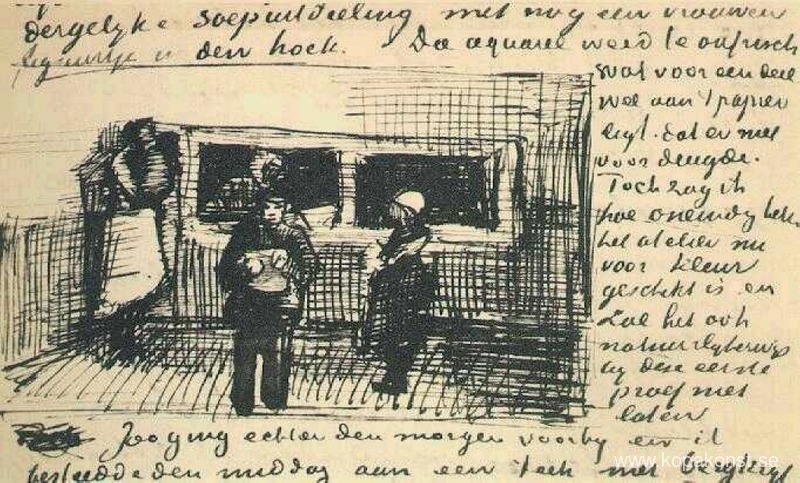 dergelyke soepuitdeeling met nog een vrouwen
figuurtje in den hoek. De aquarel werd te onfrisch
wat voor een deel
wel aan 't papier
ligt. dat er niet
voor deugde.
Toch zag ik
hoe oneindig beter
het atelier nu
voor kleur
geschikt is en
zal het ook
natuurlykerwijs
by deze eerste
proef niet
laten
Zoo ging echter den morgen voorby en ik
besteedde den middag aan een teek met dergelyk
www.kopakonst.se